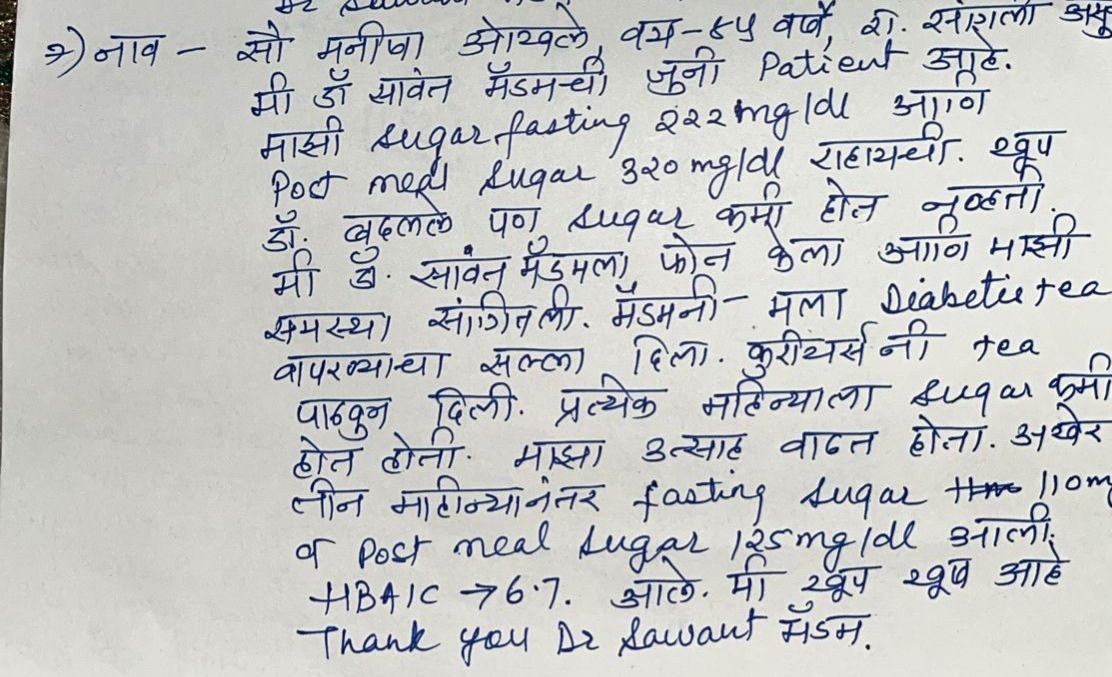 Dr Sawant
२) नाव - सौ मनीषा ओयवले, वय-४५ वर्षे, रा. सांगली
मी डॉ सावंत मॅडमची जुनी Patient आहे.
माझी sugar fasting २२२ mg/dl आणि
Post meal sugar ३२० mg/dl राहायची. खूप
डॉ. बदलले पण sugar कमी होत नव्हती.
मी डॉ. सावंत मॅडमला फोन केला आणि माझी
समस्या सांगितली. मॅडमनी मला Diabetic tea
वापरण्याचा सल्ला दिला. कुरीयर्स नी tea
पाठवुन दिली. प्रत्येक महिन्याला sugar कमी
होत होती. माझा उत्साह वाढत होता. अखेर
तीन माहीन्यानंतर fasting sugar 110m
व Post meal sugar 125 mg/dl आली.
HBA1C → 6.7. आले. मी खूप खूष आहे
Thank you Dr Sawant मॅडम.